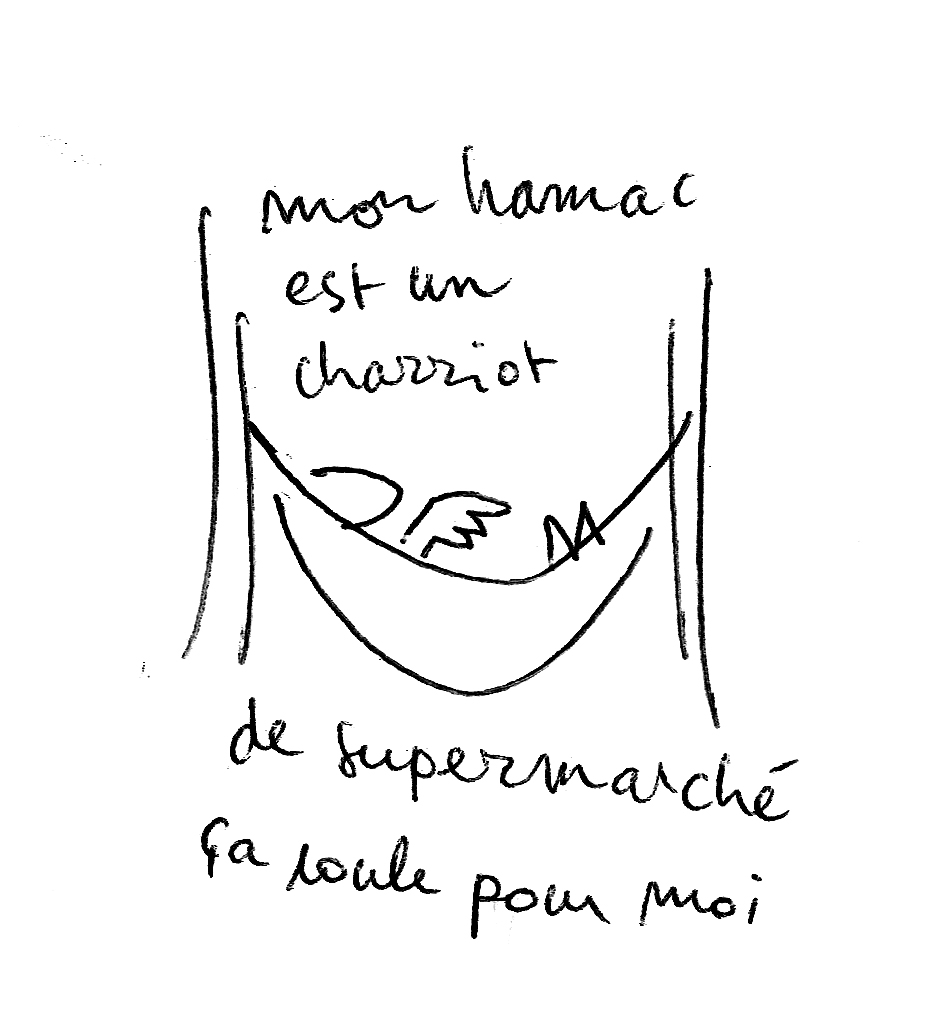 mon hamac
est un
charriot
de supermarché
ça roule pour moi